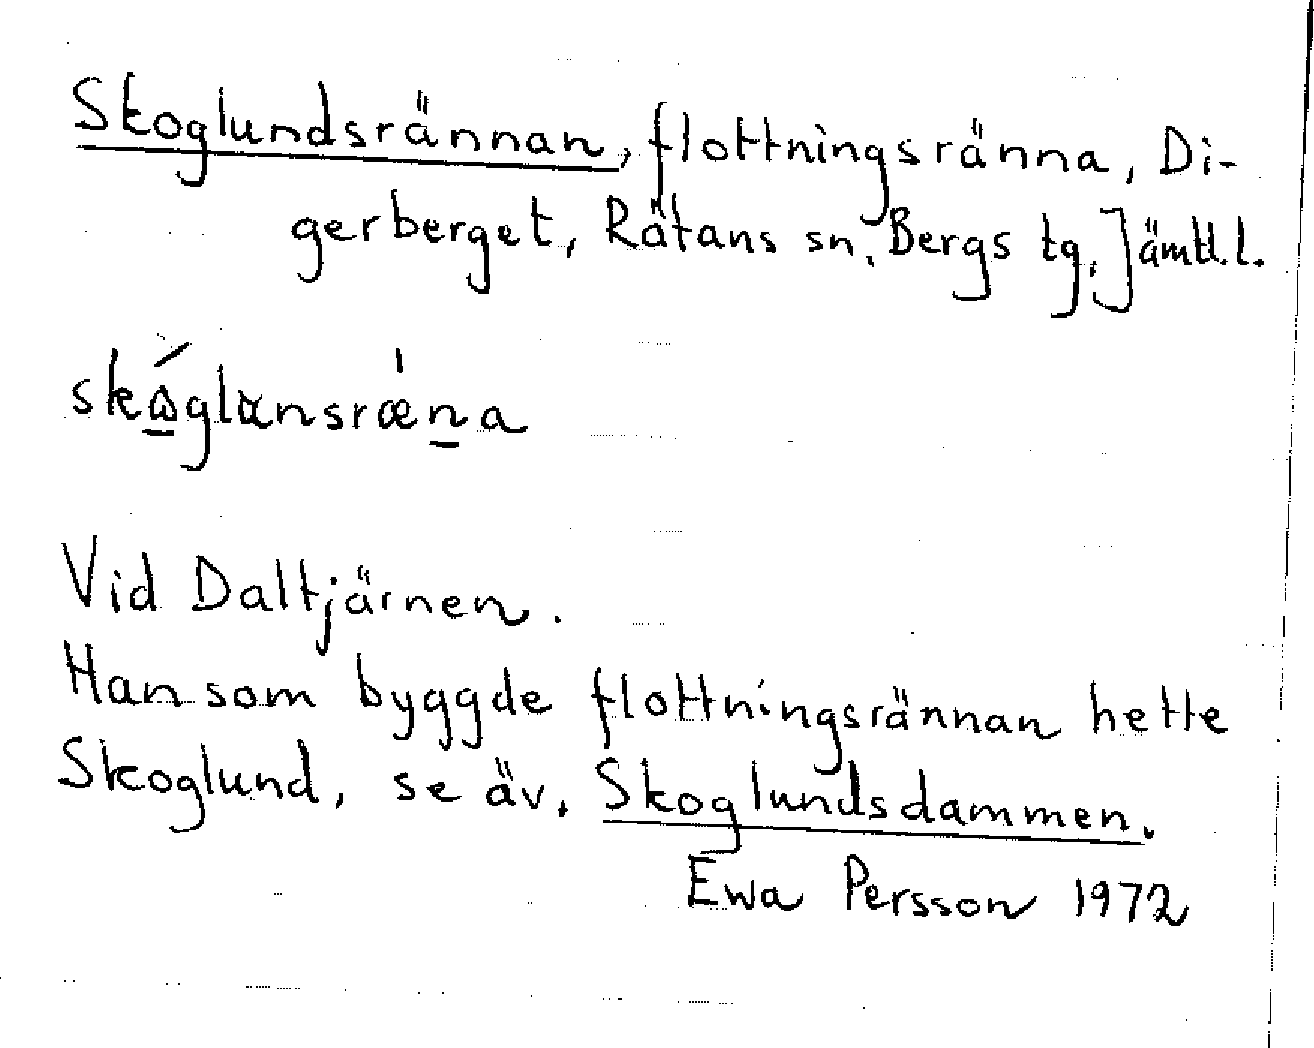 Skoglundsrännan, flottningsränna, Di-
gerberget, Rätans sn, Bergs tg, Jämtl.l.
Vid Daltjärnen.
Han som byggde flottningsrännan hette
Skoglund, se äv. Skoglundsdammen.
Ewa Persson 1972